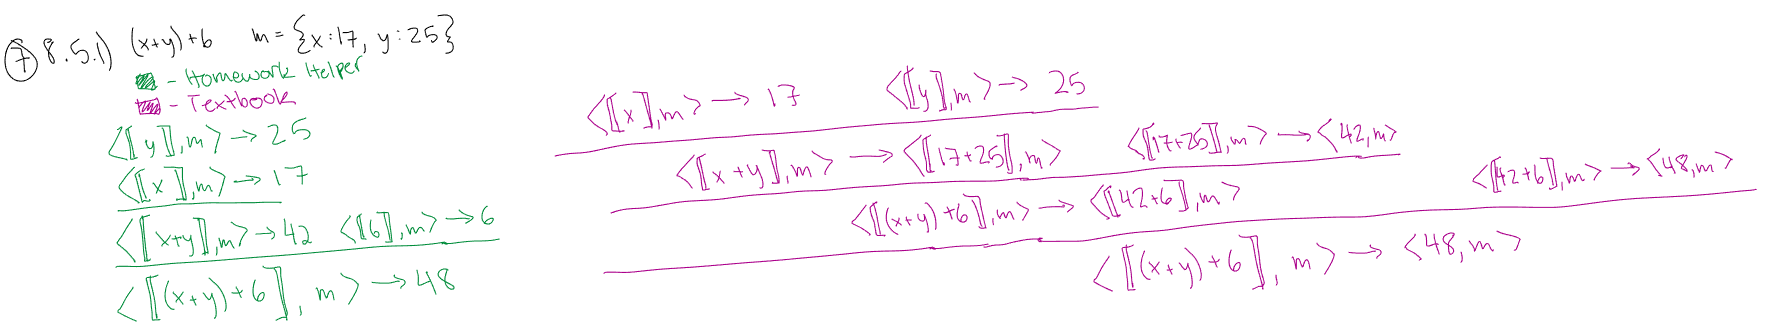 ⑦ 8.5.1) (x+y)+6 m = {x:17, y:25}
- Homework Helper
- Textbook
<⟦y⟧,m> → 25
<⟦x⟧,m> → 17
<⟦x+y⟧,m> → 42 <⟦6⟧,m> → 6
<⟦(x+y)+6⟧, m> → 48
<⟦x⟧,m> → 17 <⟦y⟧,m> → 25
<⟦x+y⟧,m> → <⟦17+25⟧,m> <⟦17+25⟧,m> → <42,m>
<⟦(x+y)+6⟧,m> → <⟦42+6⟧,m> <⟦42+6⟧,m> → <48,m>
<⟦(x+y)+6⟧, m> → <48,m>